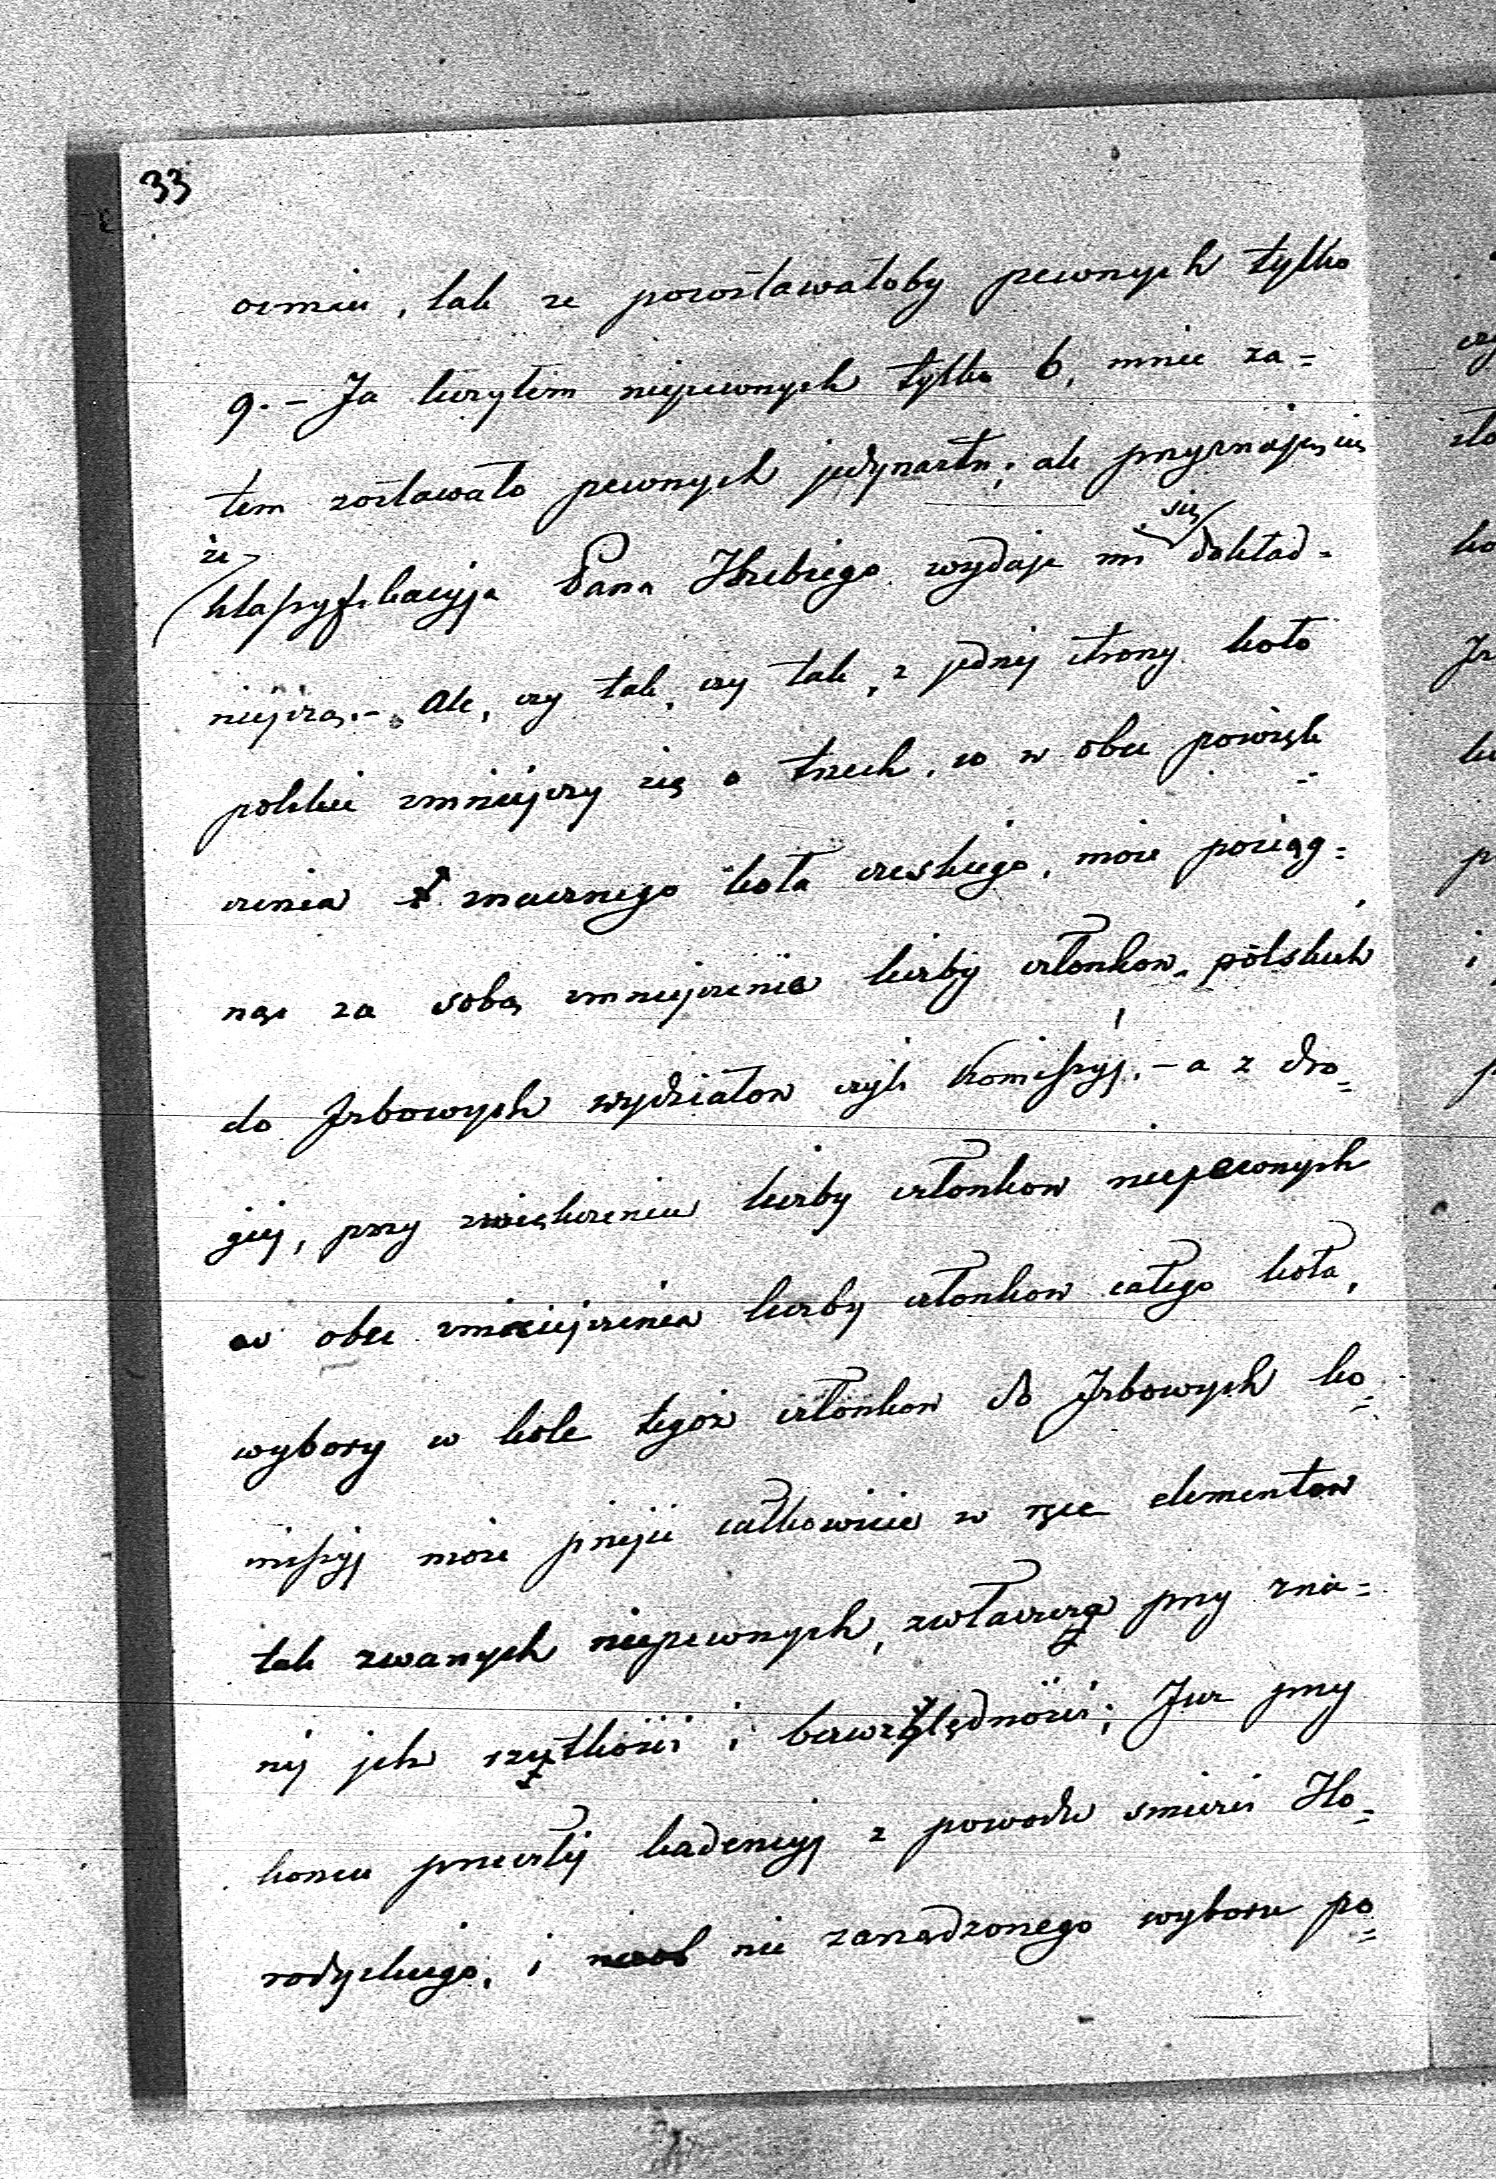 33
osmiu, tak ze pozostawałoby pewnych tylko
9. – Ja liczyłem niepewnych tylko 6, mnie za=
tem zostawało pewnych jedynastu; ale przyznaję, iż
że klassyfikacyja Pana Hrabiego wydaje mi się dokład=
niejszą. – Ale, czy tak, czy tak, z jednej strony koło
polskie zmniejszy się o trzech, co w obec powięk=
szenia znacznego koła czeskiego, może pociąg=
nąć za sobą zmniejszenie liczby członkow polskich
do Izbowych wydziałow czyli Komissyj, – a z dru=
giej, przy zwiększeniu liczby członkow niepewnych
w obec zmniejszenia liczby członkow całego koła,
wybory w kole tegoż członkow do Izbowych ko=
missyj może przejść całkowicie w ręce elementow
tak zwanych niepewnych, zwłaszcza przy zna=
nej ich szytkości i bezwzględności; Juz przy
koncu przeszłej kadencyj z powodu smierci Ho=
rodyskiego, i nie zarządzonego wyboru po=